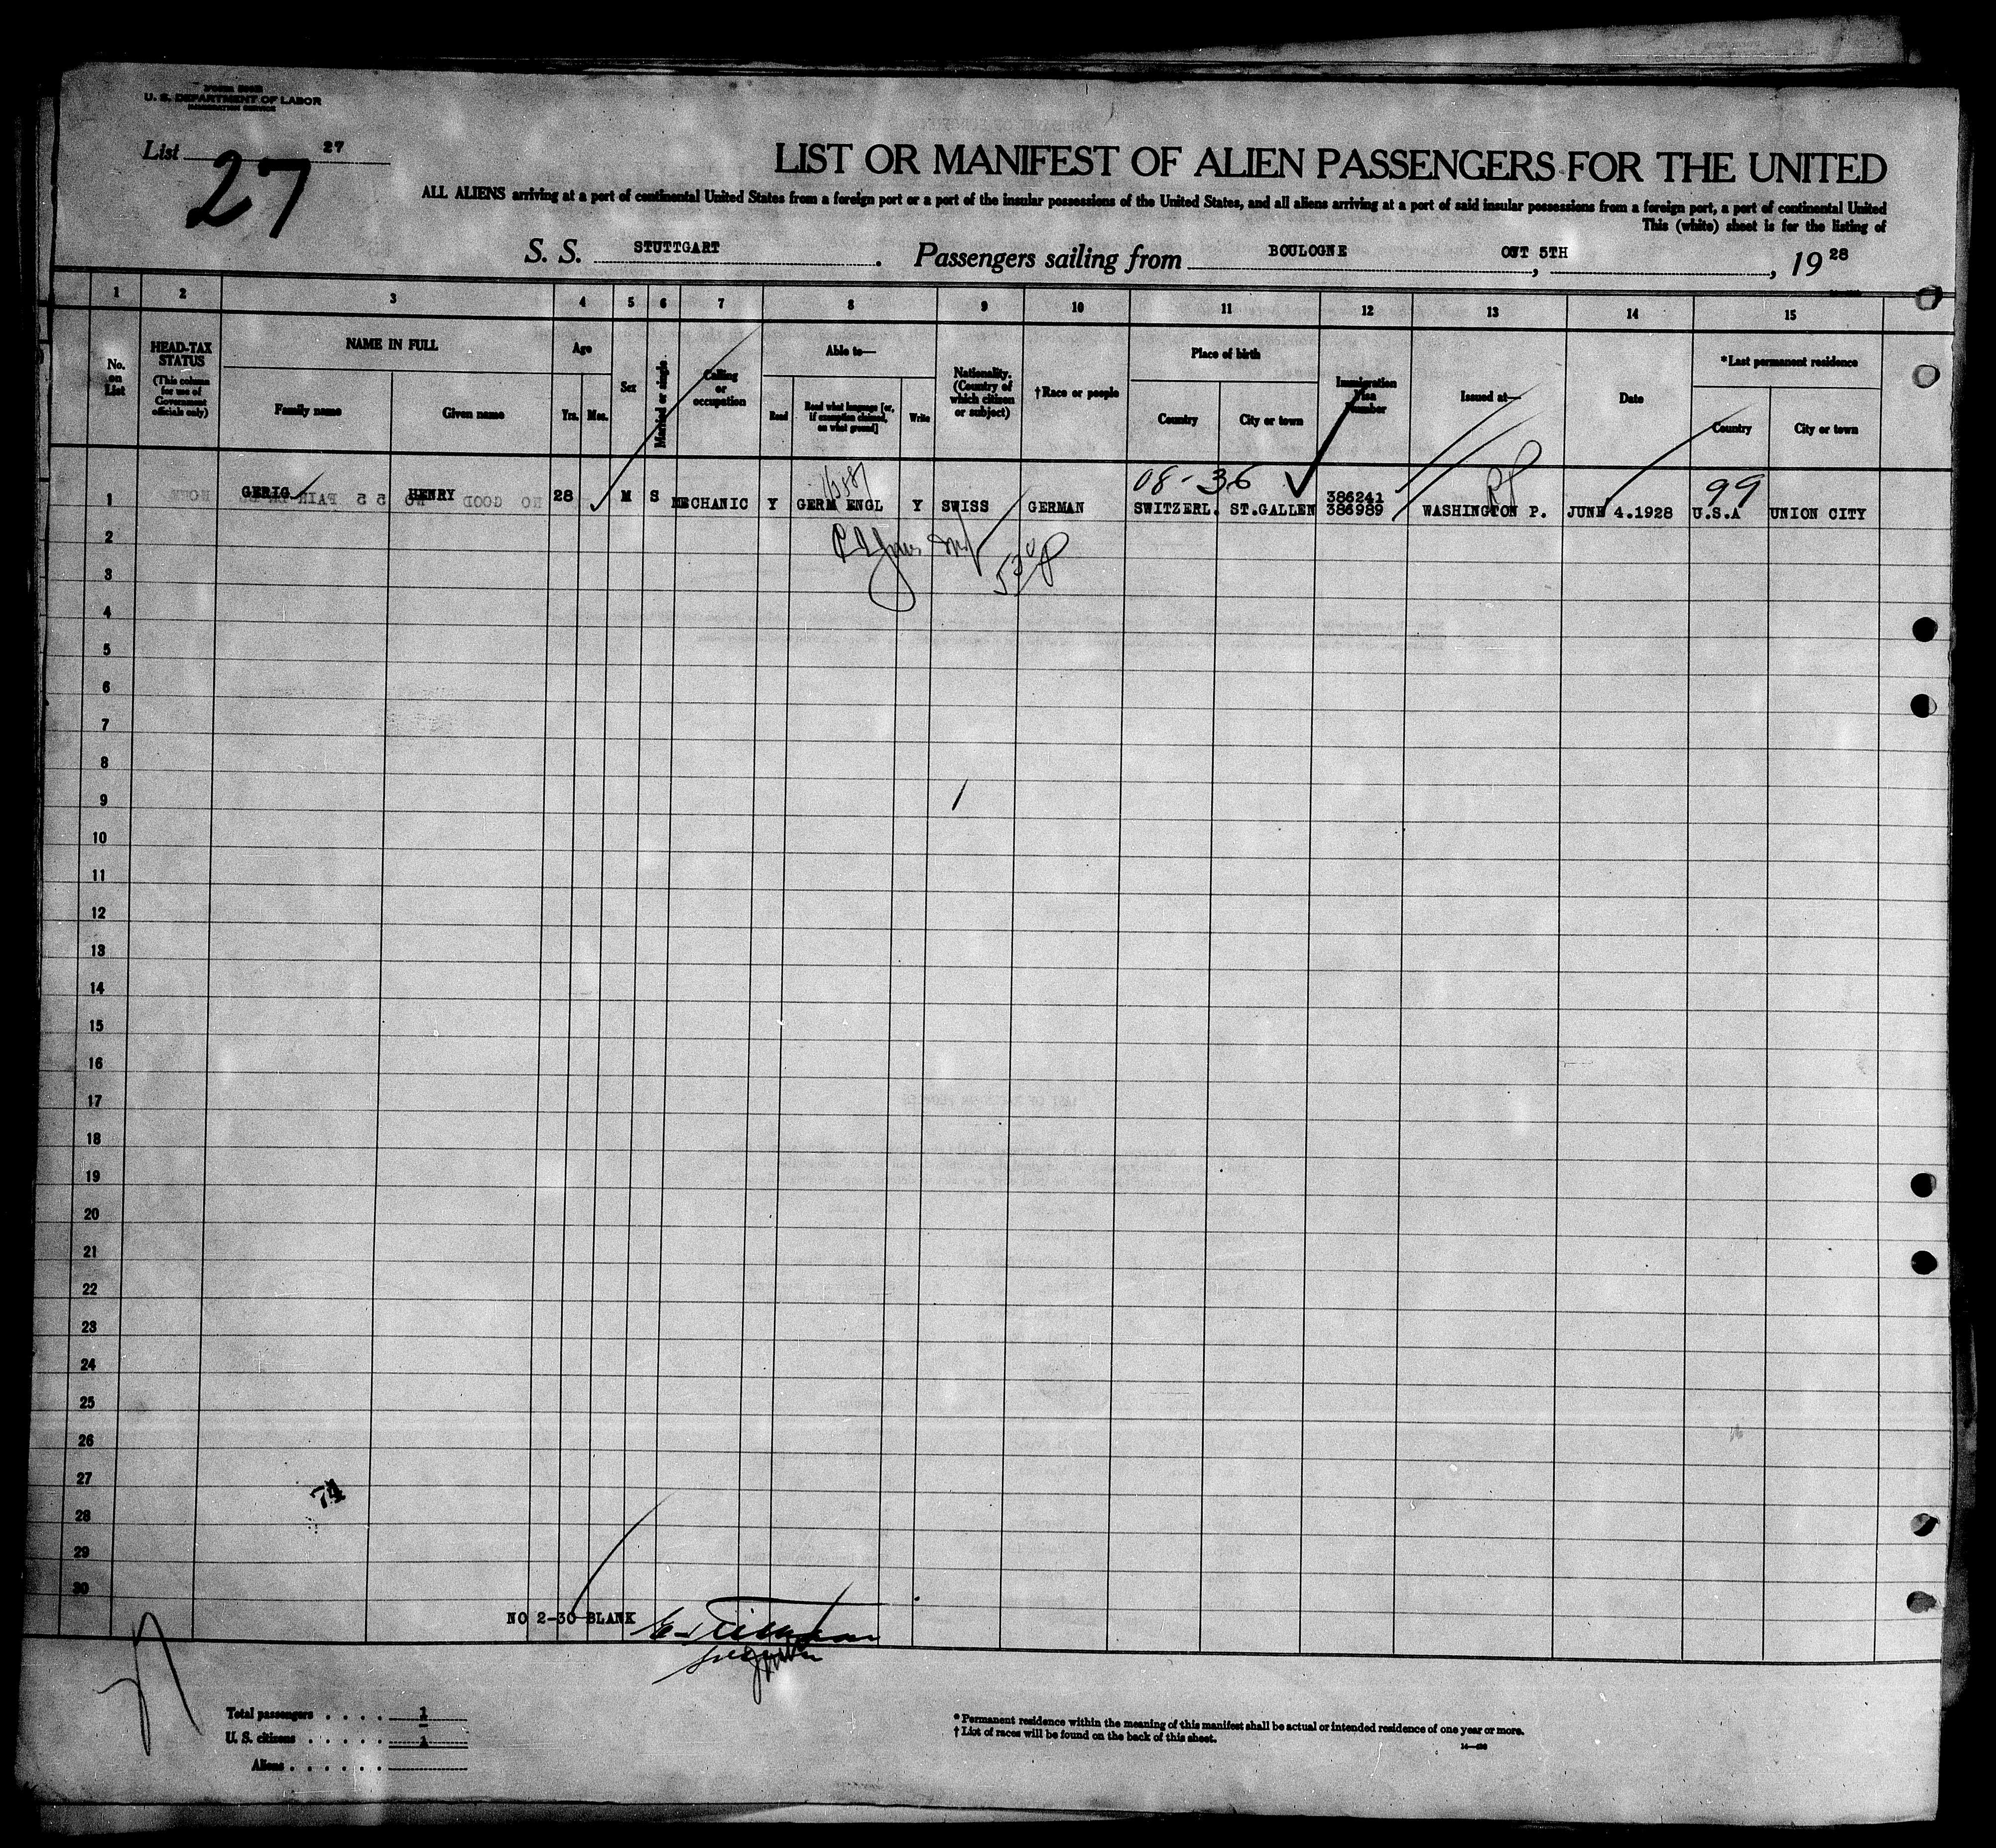 U. S. DEPARTMENT OF LABOR
IMMIGRATION SERVICE
List 27
27
LIST OR MANIFEST OF ALIEN PASSENGERS FOR THE UNITED
ALL ALIENS arriving at a port of continental United States from a foreign port or a port of the insular possessions of the United States, and all aliens arriving at a port of said insular possessions from a foreign port, a port of continental United
This (white) sheet is for the listing of
S. S. STUTTGART. Passengers sailing from BOULOGNE, OCT 5TH, 19 28
1 2 3 4 5 6 7 8 9 10 11 12 13 14 15
No. on List
HEAD-TAX STATUS (This column for use of Government officials only)
NAME IN FULL
Family name
Given name
Age
Yrs. Mos.
Sex
Married or single
Calling or occupation
Able to—
Read
Read what language [or, if exemption claimed, on what ground]
Write
Nationality. (Country of which citizen or subject)
†Race or people
Place of birth
Country
City or town
Immigration Visa Number
Issued at—
Date
*Last permanent residence
Country
City or town
08-36 99
1 GERIG HENRY 28 M S MECHANIC Y GERM ENGL Y SWISS GERMAN SWITZERL. ST.GALLEN 386241 386989 WASHINGTON P. JUNE 4.1928 U.S.A UNION CITY
2
3
4
5
6
7
8
9
10
11
12
13
14
15
16
17
18
19
20
21
22
23
24
25
26
27
74
28
29
30
NO 2-30 BLANK
Total passengers . . . . 1
U. S. citizens . . . . . 1
Aliens . . . . . .
* Permanent residence within the meaning of this manifest shall be actual or intended residence of one year or more.
† List of races will be found on the back of this sheet.